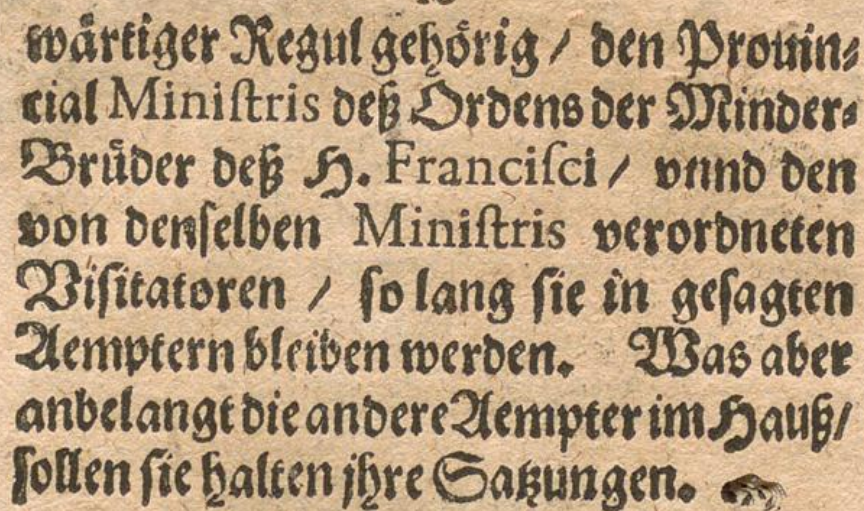 wärtiger Regul gehörig / den Prouin⸗
cial Miniſtris deß Ordens der Minder⸗
Brüder deß H. Franciſci / vnnd den
von denſelben Miniſtris verordneten
Viſitatoren / ſo lang ſie in geſagten
Aemptern bleiben werden. Was aber
anbelangt die andere Aempter im Hauß/
ſollen ſie halten jhre Satzungen.